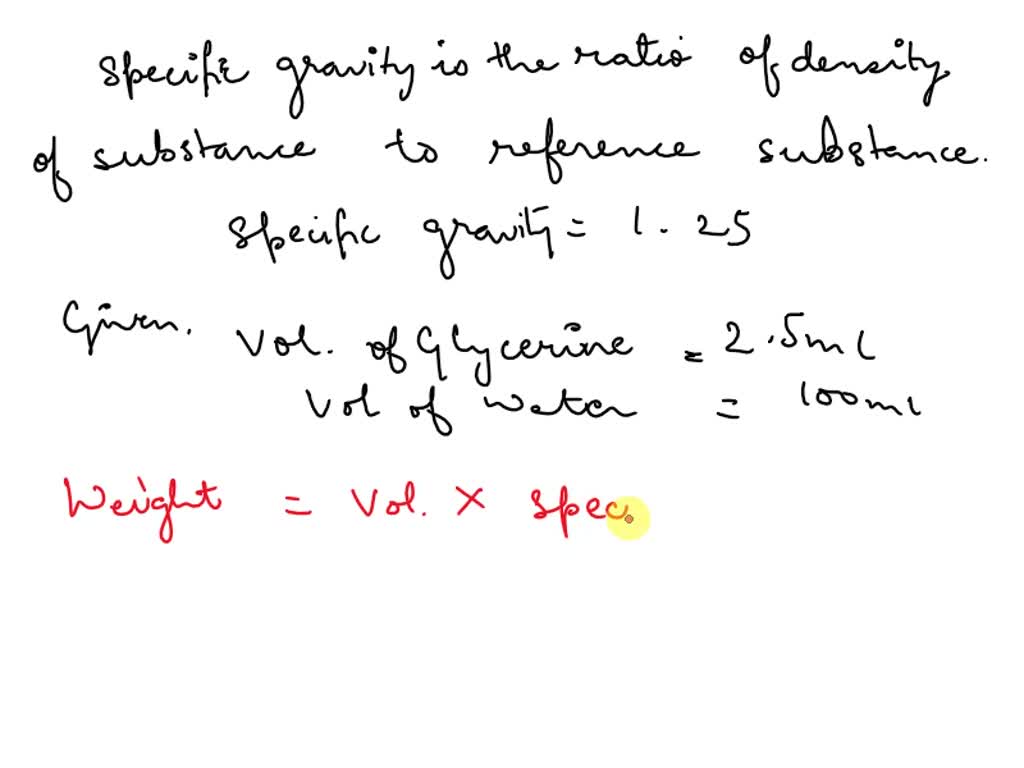 Specific gravity is the ratio of density
of substance to reference substance.
Specific gravity = 1.25
Given. Vol. of Glycerine = 2.5ml
Vol of water = 100ml
Weight = Vol. × spec